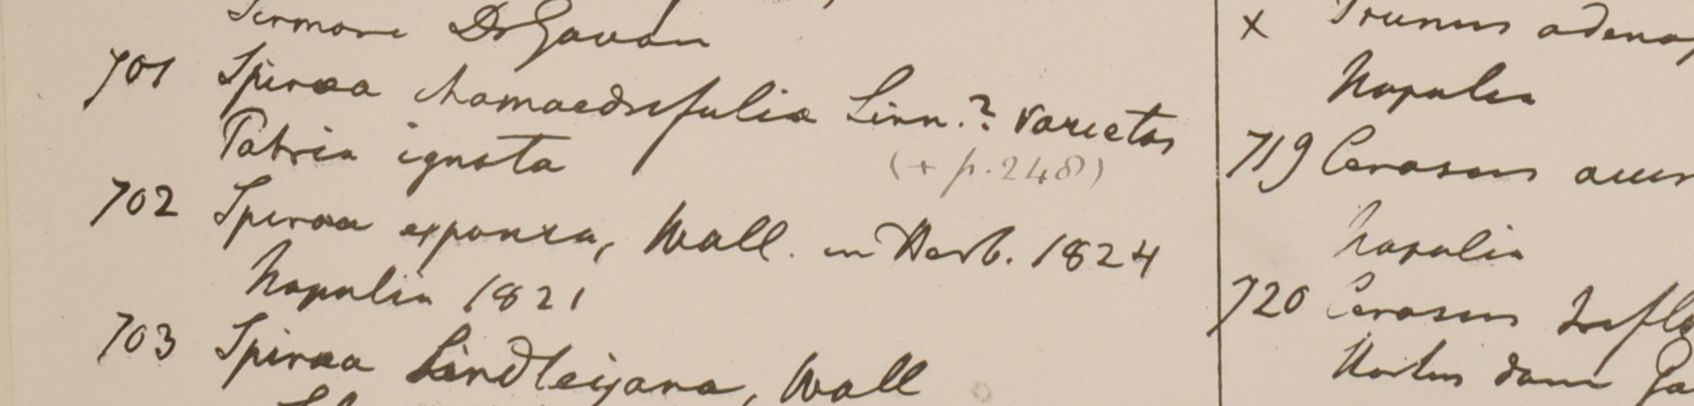 Sirmore Dr Govan
701 Spiræa chamaedrifolia Linn.? varietas
Patria ignota
(+ p. 248)
702 Spiraea expansa, Wall. in Herb. 1824
Napalia 1821
703 Spiræa Lindleyana, Wall
x Prunus adeno
Napalea
719 Cerasus
Napalia
720 Cerasus
Hortus